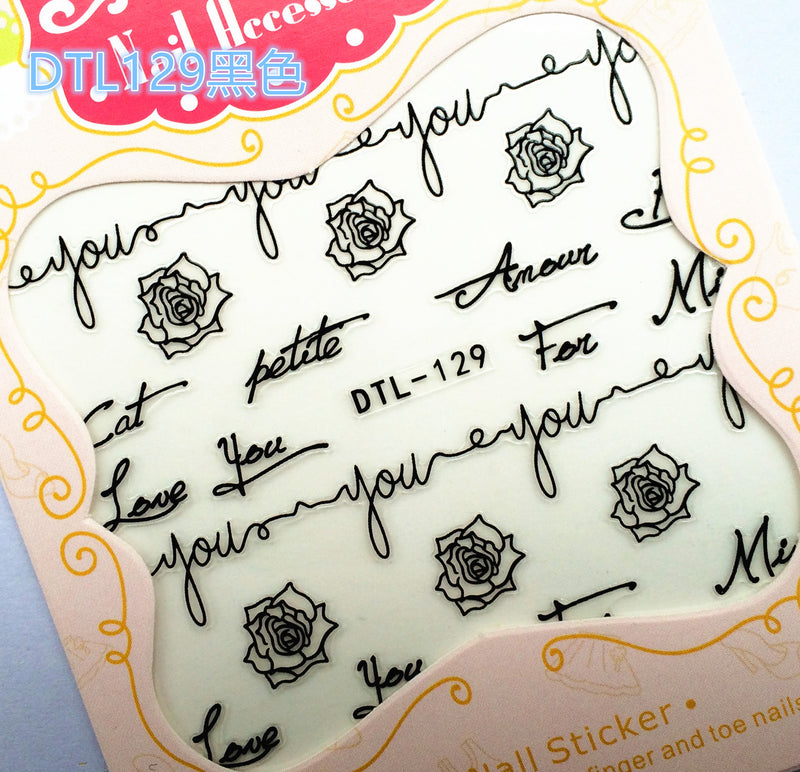 Nail Accesso
DTL129黑色
you you you yo
Amour
Cat petite DTL-129 For Mi
Love You
you you you y
Mi
Love You
Nail Sticker •
finger and toe nails